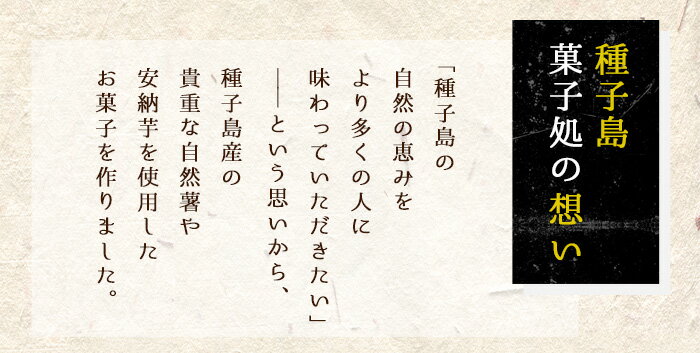 種子島
菓子処の想い
「種子島の
自然の恵みを
より多くの人に
味わっていただきたい」
――という思いから、
種子島産の
貴重な自然薯や
安納芋を使用した
お菓子を作りました。